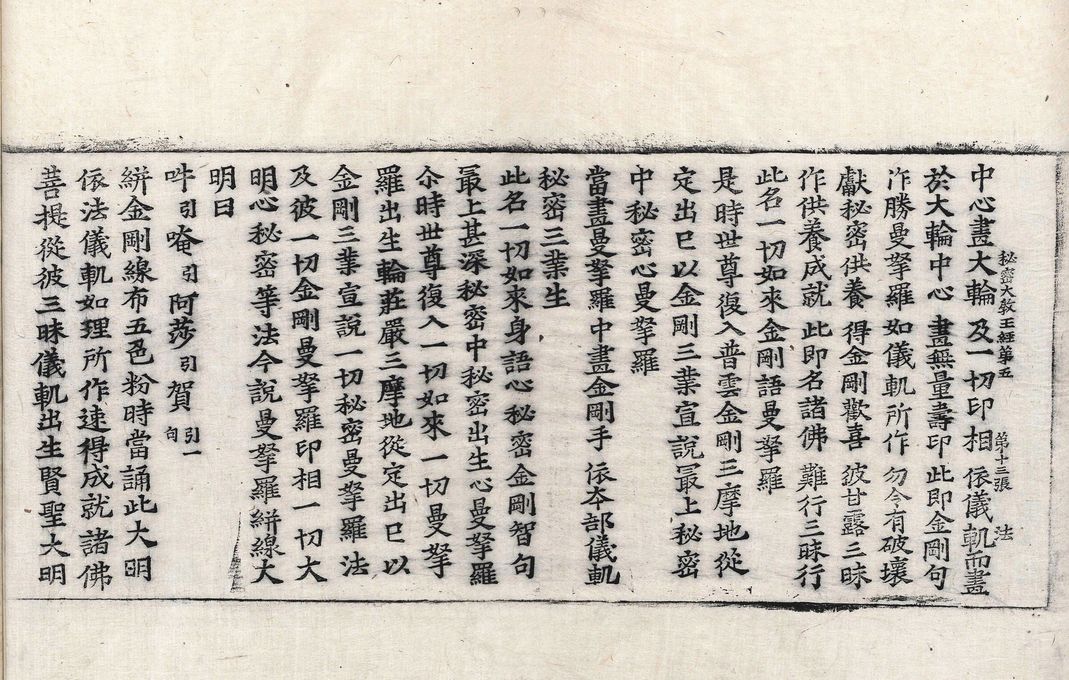 中心畫大輪 及一切印相 依儀軌而畫
秘密大教王經第五 第十三張 法
於大輪中心 畫無量壽印 此即金剛句
作勝曼拏羅 如儀軌所作 勿令有破壞
獻秘密供養 得金剛歡喜 彼甘露三昧
作供養成就 此即名諸佛 難行三昧行
此名一切如來金剛語曼拏羅
是時世尊復入普雲金剛三摩地從
定出已以金剛三業宣說最上秘密
中秘密心曼拏羅
當畫曼拏羅中畫金剛手 依本部儀軌
秘密三業生
此名一切如來身語心秘密金剛智句
最上甚深秘密中秘密出生心曼拏羅
尒時世尊復入一切如來一切曼拏
羅出生輪莊嚴三摩地從定出已以
金剛三業宣說一切秘密曼拏羅法
及彼一切金剛曼拏羅印相一切大
明心秘密等法今說曼拏羅絣線大
明曰
吽引唵引阿莎引賀引一句
絣金剛線布五色粉時當誦此大明
依法儀軌如理所作速得成就諸佛
菩提從彼三昧儀軌出生賢聖大明